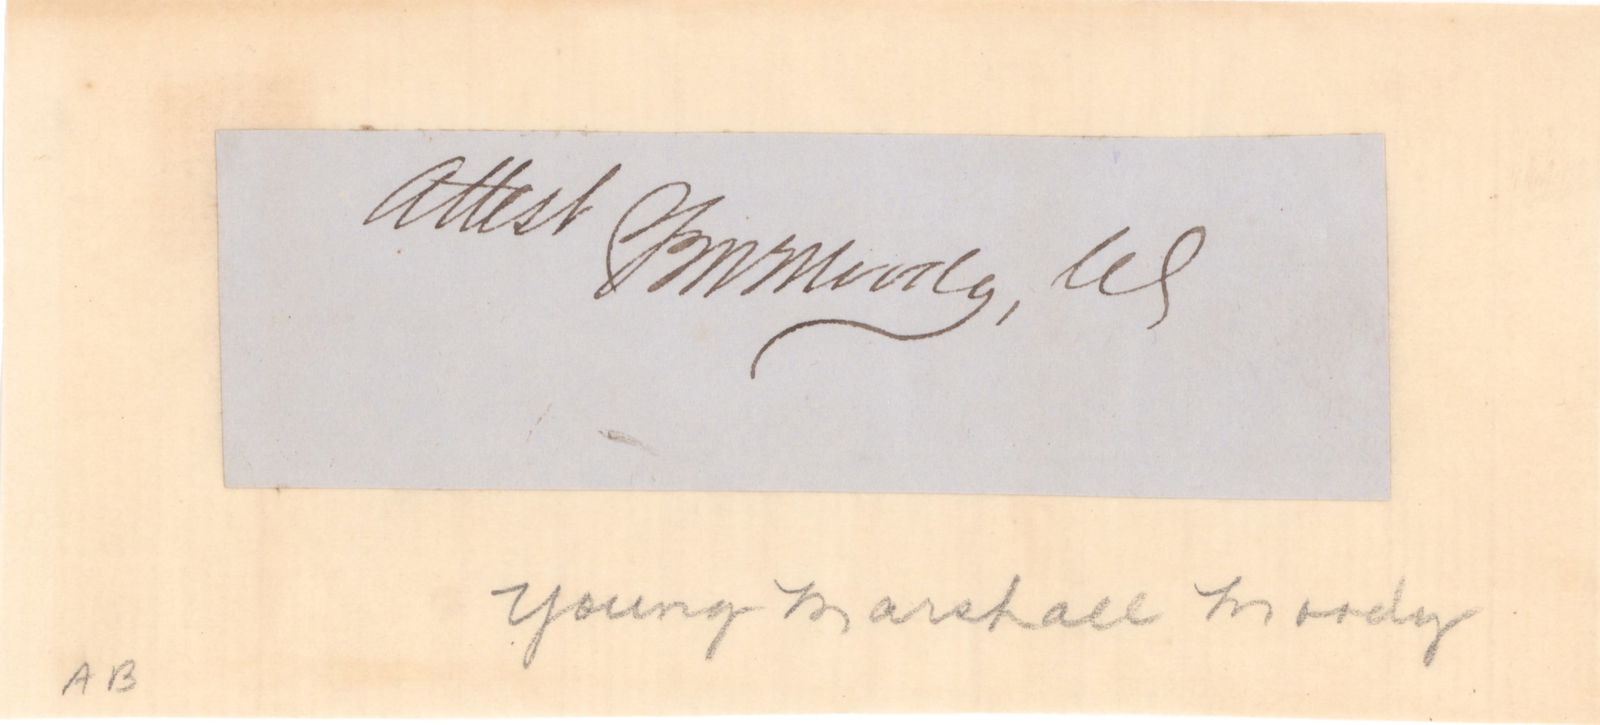 Attest Y M Moody, Clk
Young Marshall Moody
A B